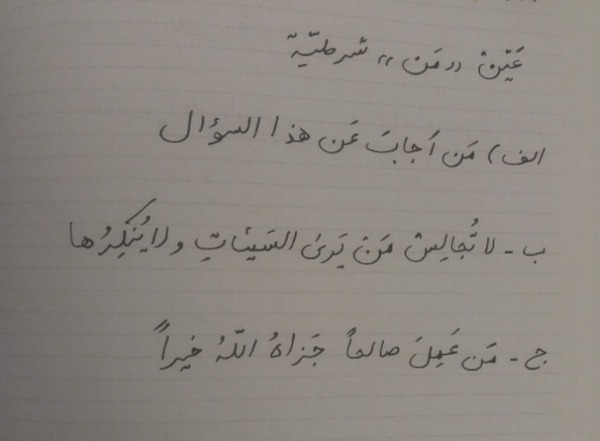 عَيِّن «مَن» شرطيّة
الف) مَن اَجابَ عَن هذا السؤال
ب - لا تُجالِسْ مَنْ يَرىٰ السَيئاتِ ولا يُنكِرُها
ج - مَن عَمِلَ صالحاً جَزاهُ اللّهُ خيراً